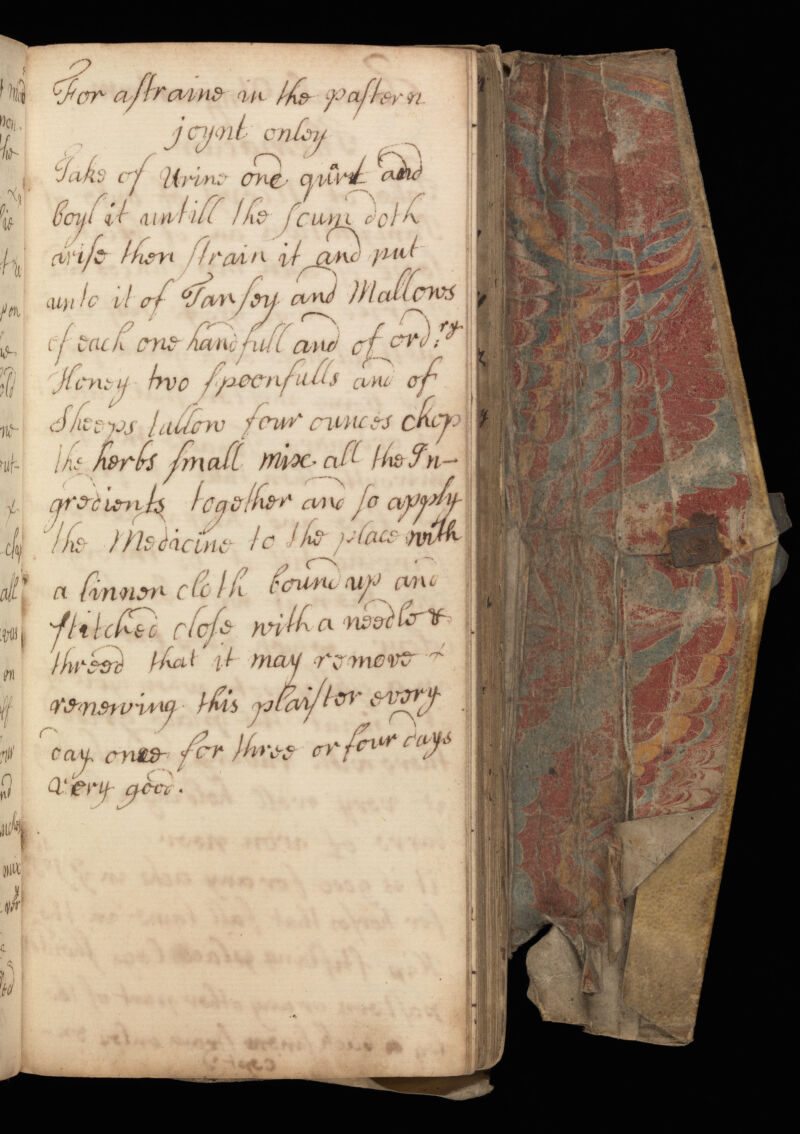 For a straine in the pastern
joynt onley
Take of Urine one qurt and
boyl it untill the scum doth
arise then strain it and put
unto it of Tansey and Mallows
of each one handfull and of ord:ry
Honey two spoonfulls and of
Sheeps tallow four ounces chop
the herbs small mix all the In-
gredients together and so apply
the Medicine to the place with
a linnen cloth bound up and
stitched close with a needle &
threed that it may remove
renewing this plaister every
day once for three or four days
very good.